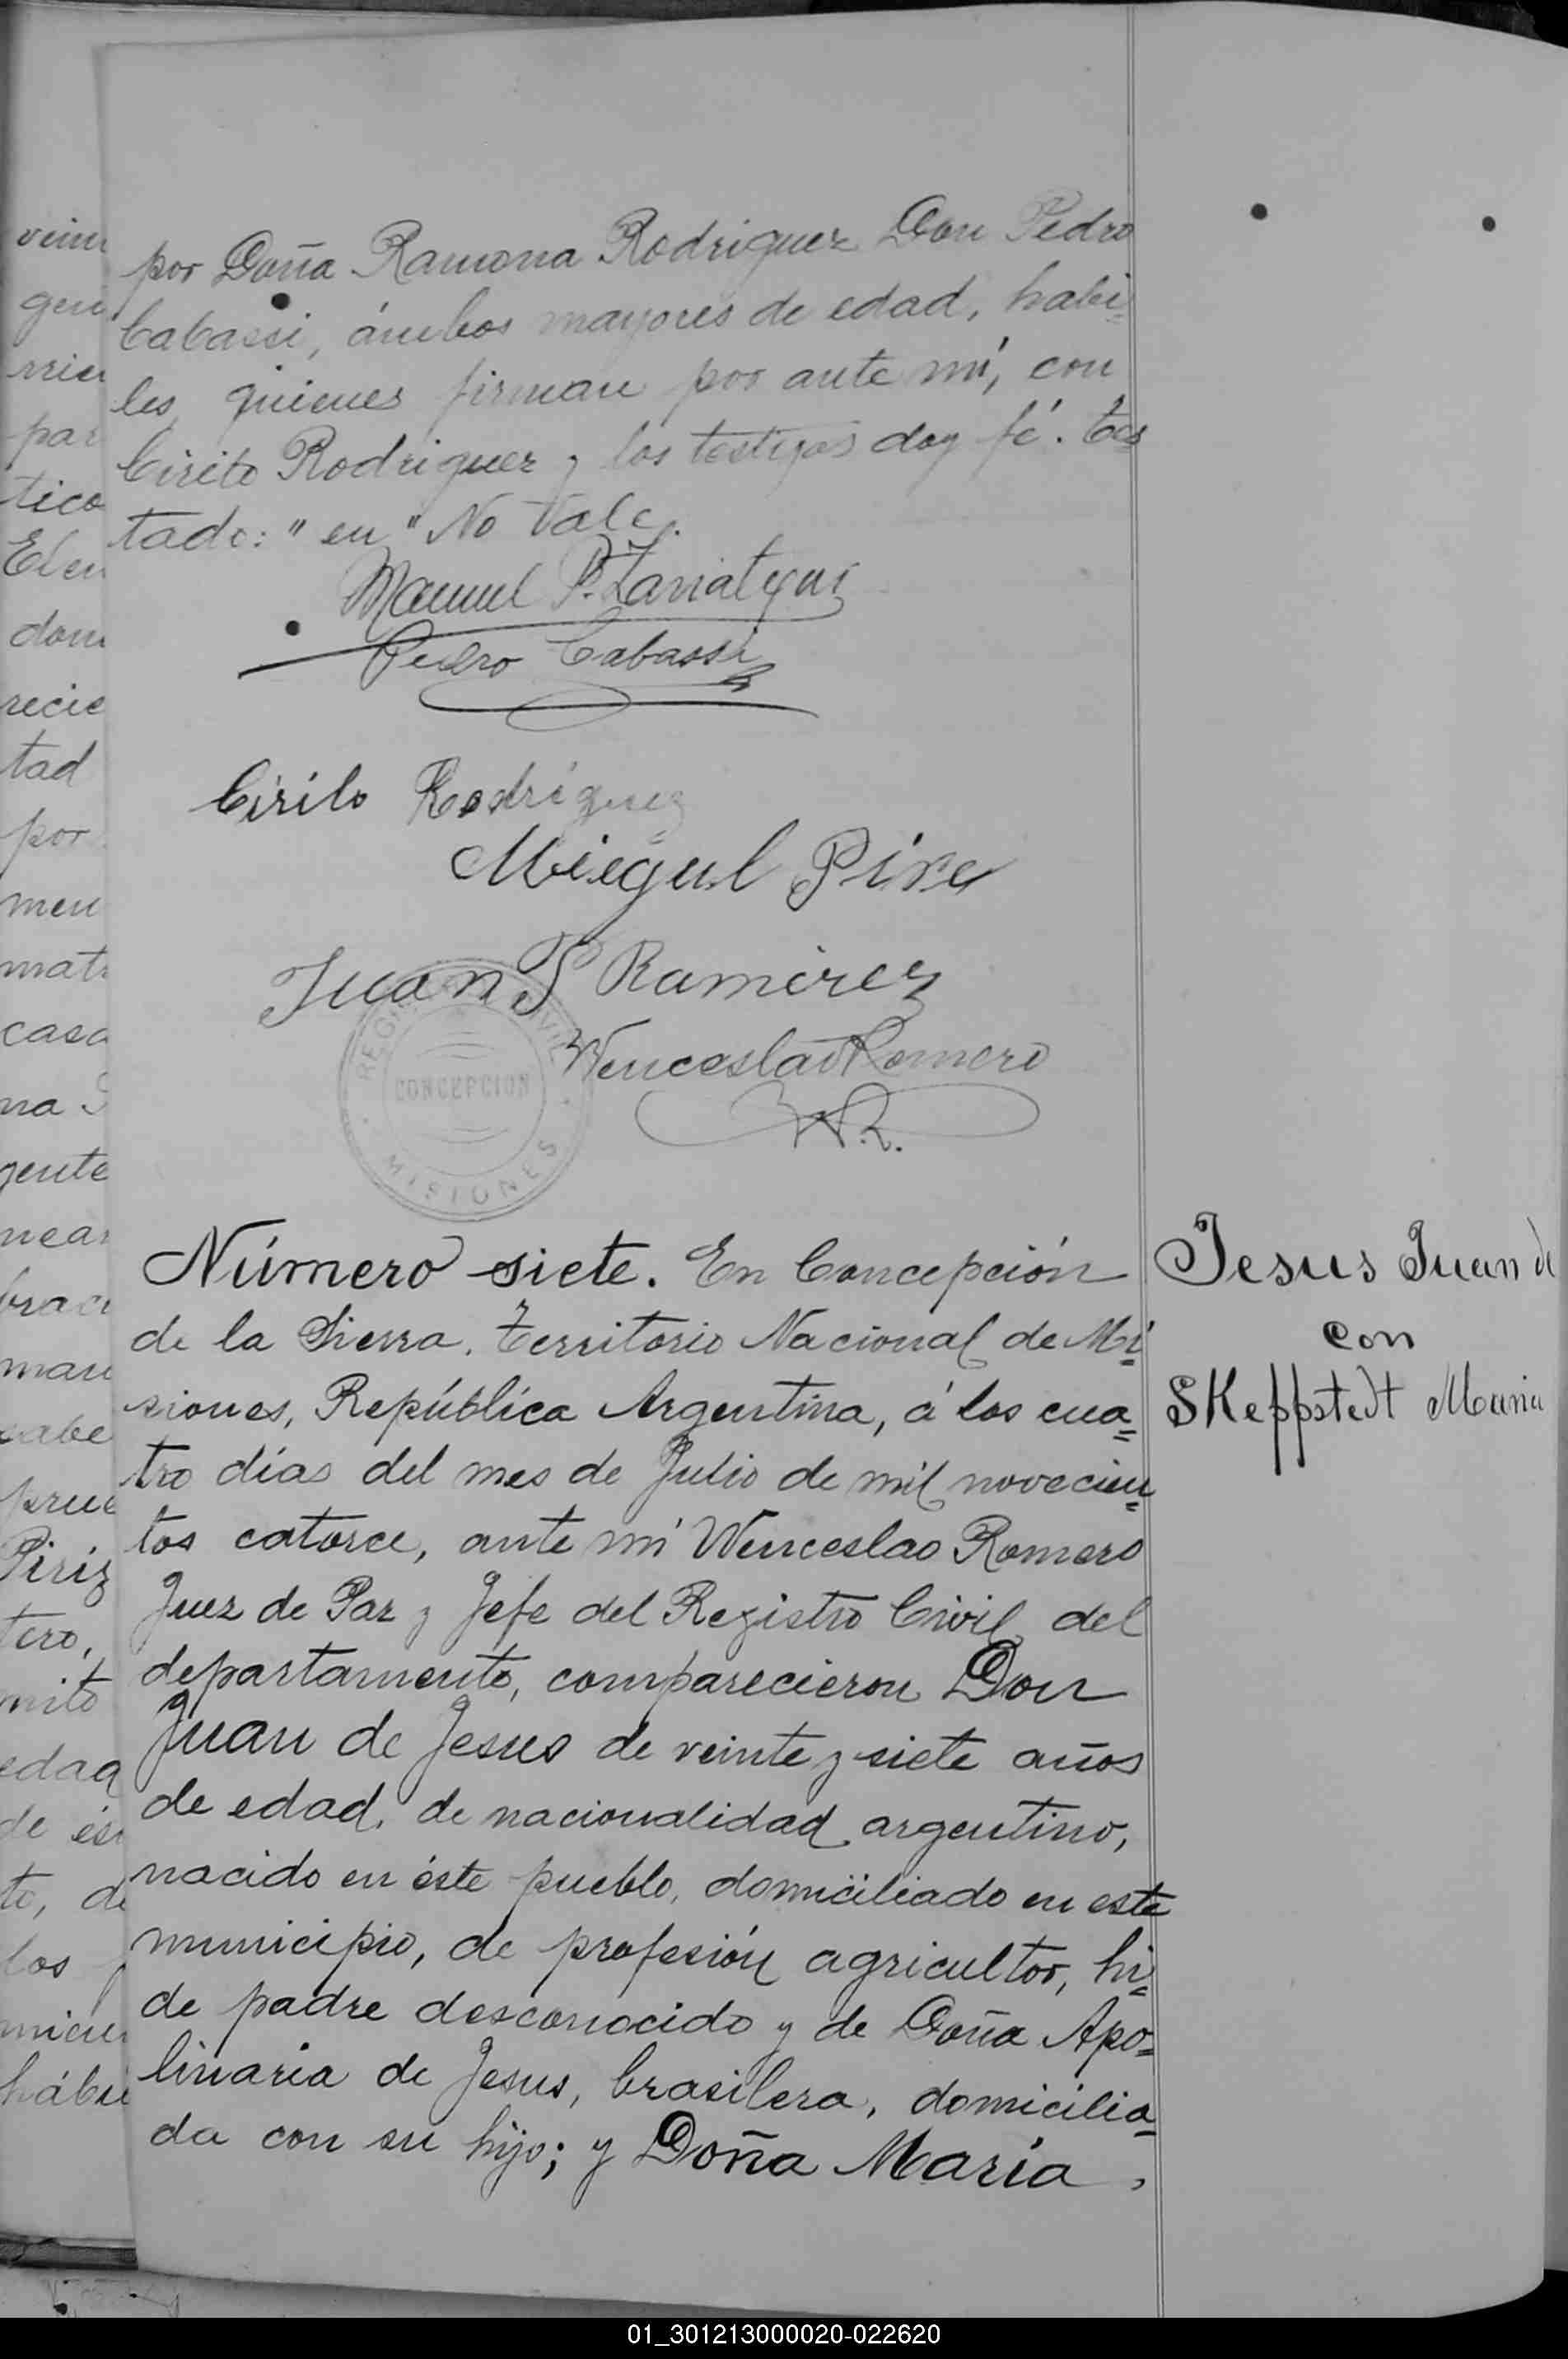 por Doña Ramona Rodriguez Don Pedro
Cabassi, ámbos mayores de edad, habi=
les, quienes firman por ante mí, con
Cirilo Rodriguez y los testigos doy fé. Tes
tado: "en" No Vale.
Manuel P.
Pedro Cabassi
Cirilo Rodríguez
Miegul Pire
Juan P Ramirez
Wenceslao Romero
W.R.
REGISTRO CIVIL
CONCEPCION
MISIONES
Número siete. En Concepción
de la Sierra, Territorio Nacional de Mi=
siones, República Argentina, á los cua=
tro días del mes de Julio de mil novecien=
tos catorce, ante mí Wenceslao Romero
Juez de Paz y Jefe del Registro Civil del
departamento, comparecieron Don
Juan de Jesus de veinte y siete años
de edad, de nacionalidad argentino,
nacido en éste pueblo, domiciliado en este
municipio, de profesión agricultor, hi=
de padre desconocido y de Doña Apo=
linaria de Jesus, brasilera, domicilia=
da con su hijo; y Doña María,
Jesus Juan de
con
SKeppstedt Maria
gen
par
tico
dom
recie
tad
por
men
mat
casa
na
gente
mari
cabe
prue
Piriz
tero,
mito
edad
de
to, de
los
hábi
01_301213000020-022620